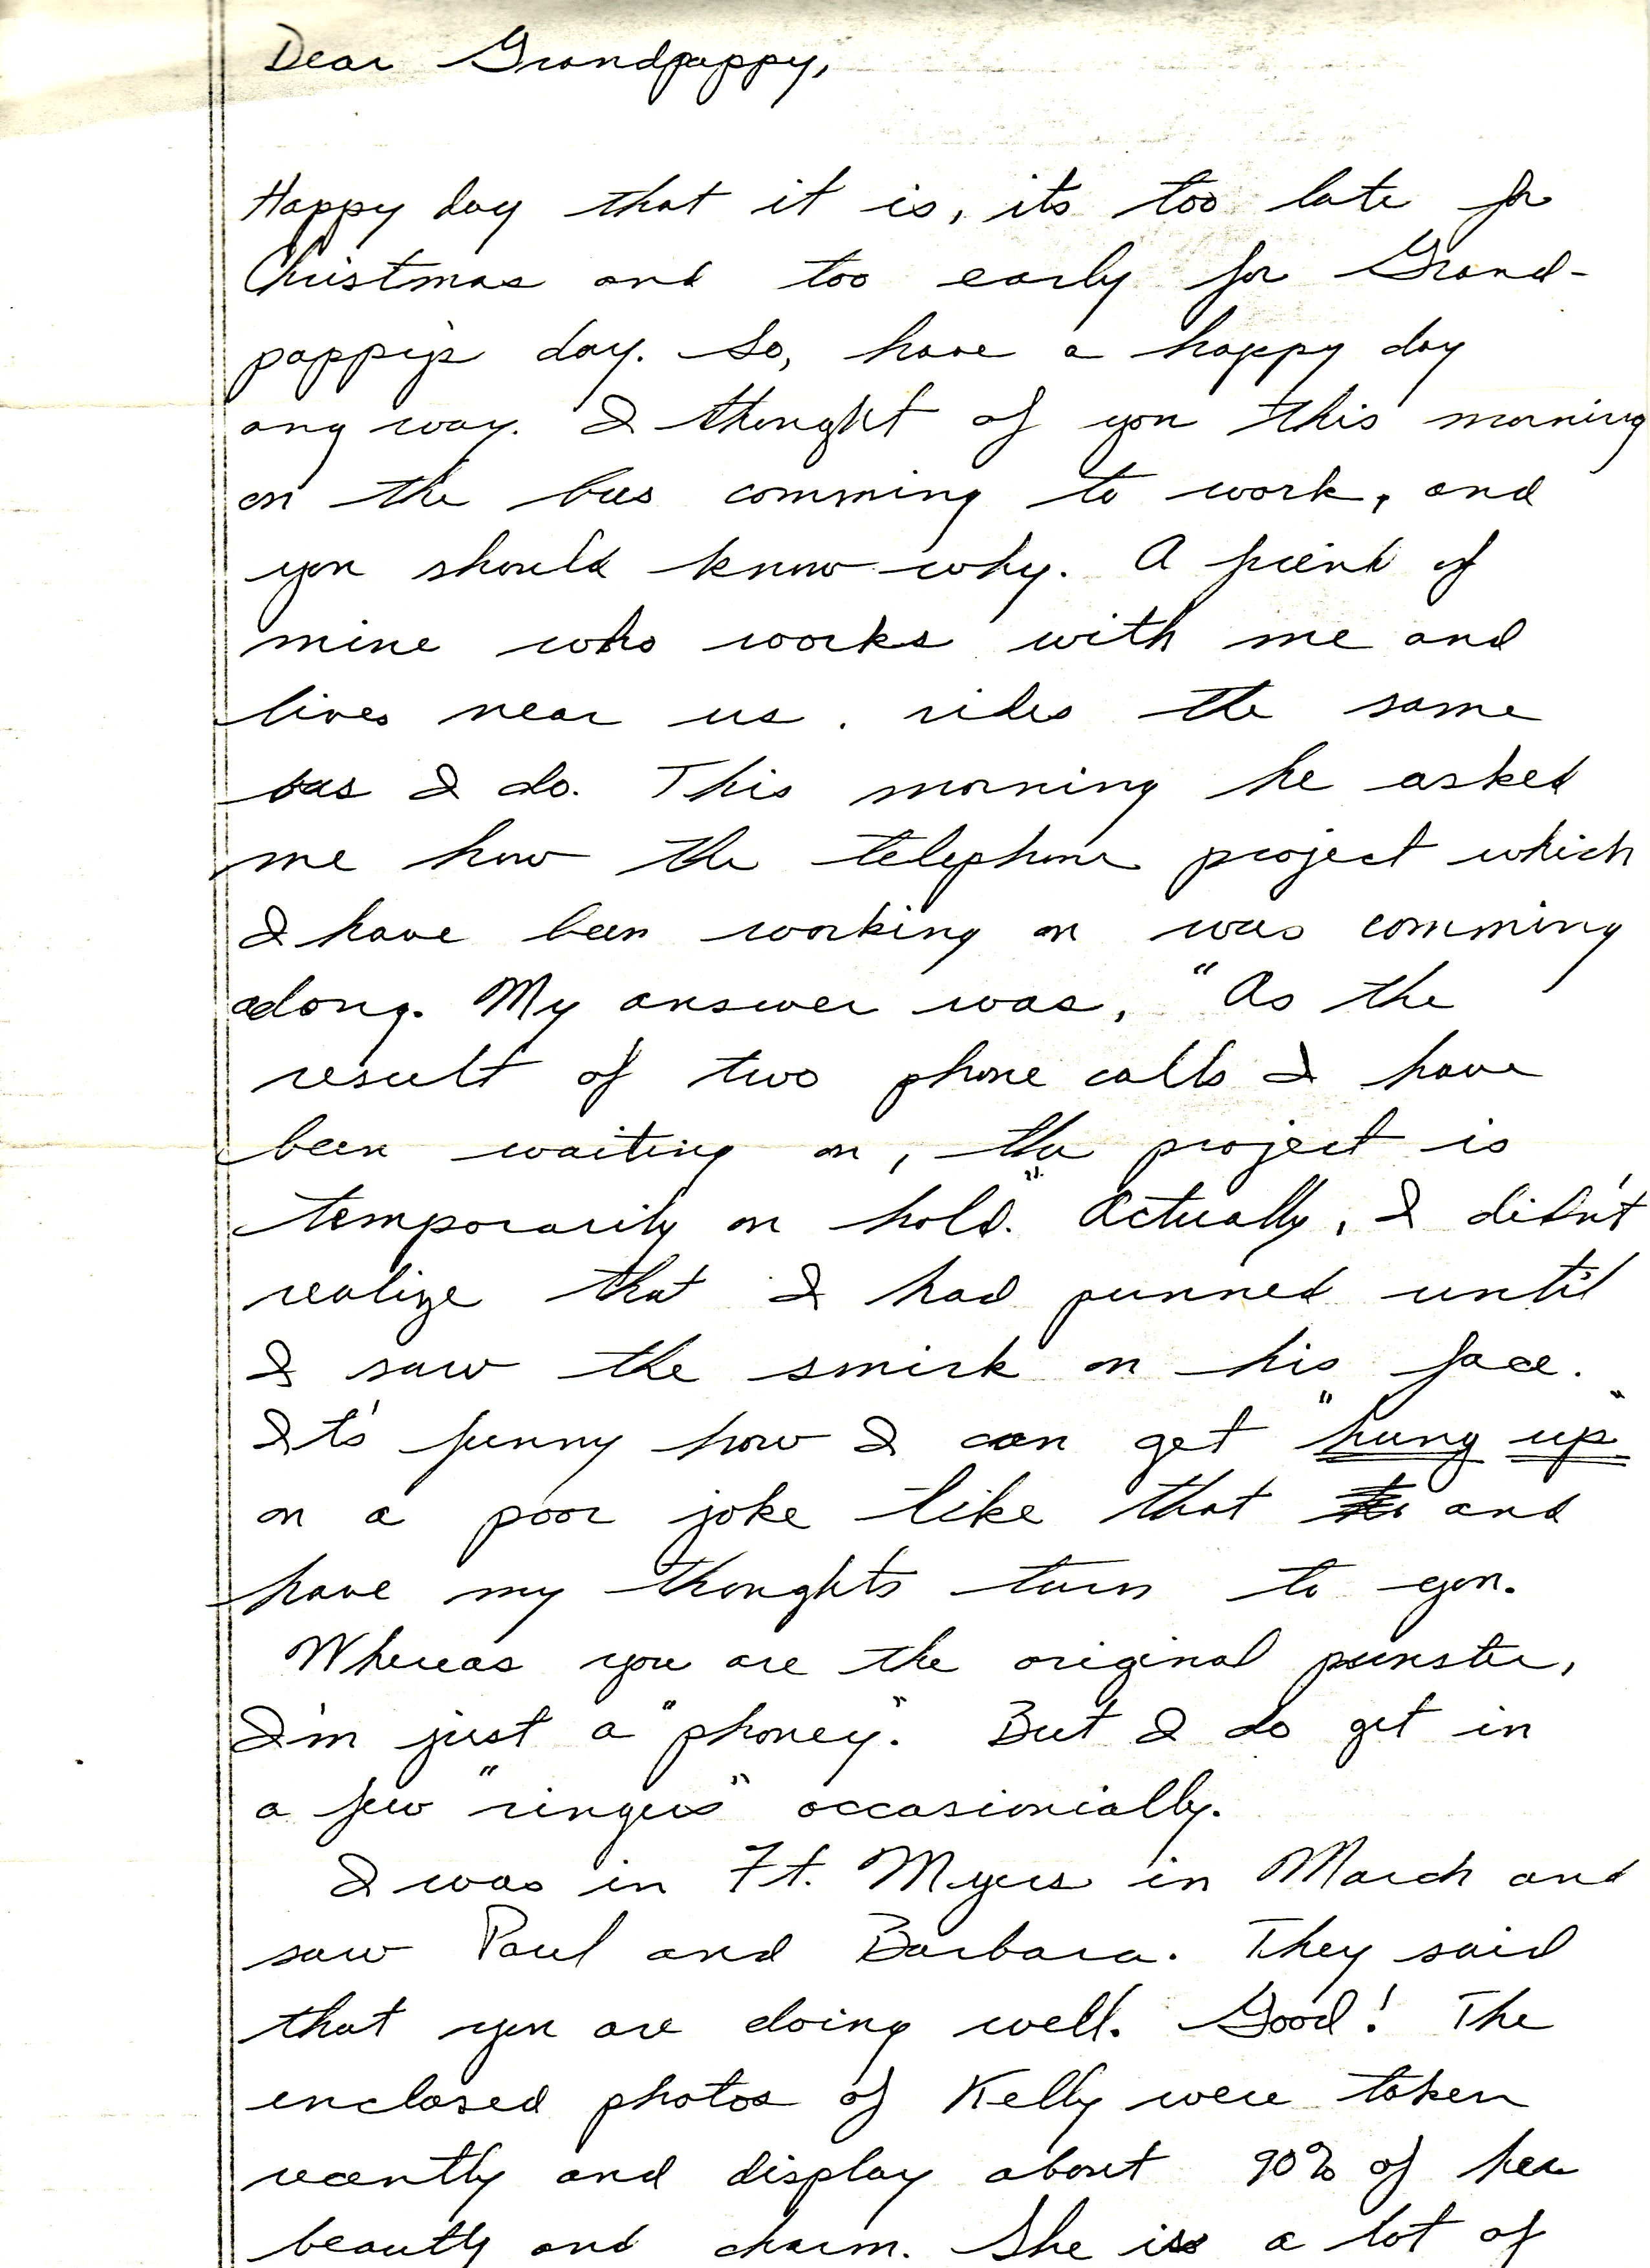 Dear Grandpappy,
Happy day that it is, its too late for
Christmas and too early for Grand-
pappy's day. So, have a happy day
any way. I thought of you this morning
on the bus comming to work, and
you should know why. A friend of
mine who works with me and
lives near us. rides the same
bus I do. This morning he asked
me how the telephone project which
I have been working on was comming
along. My answer was, "As the
result of two phone calls I have
been waiting on, the project is
temporarily on hold." Actually, I didn't
realize that I had punned until
I saw the smirk on his face.
It's funny how I can get "hung up"
on a poor joke like that and
have my thoughts turn to you.
Whereas you are the original punster,
I'm just a "phoney". But I do get in
a few "ringers" occasionially.
I was in Ft. Myers in March and
saw Paul and Barbara. They said
that you are doing well. Good! The
enclosed photos of Kelly were taken
recently and display about 90% of her
beauty and charm. She is a lot of